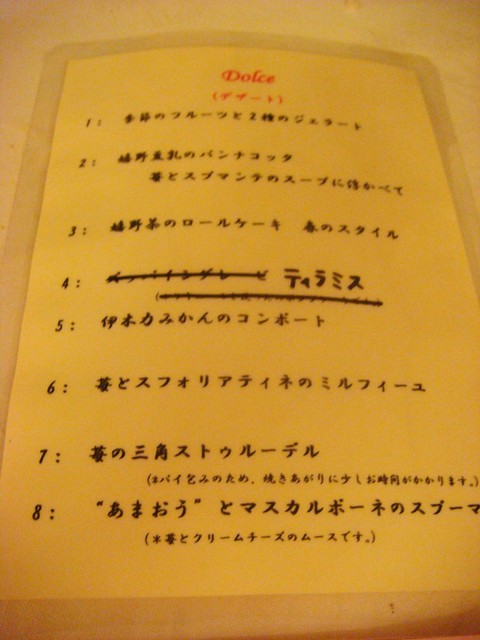 Dolce
(デザート)
1: 季節のフルーツと2種のジェラート
2: 嬉野豆乳のパンナコッタ
苺とスプマンテのスープに浮かべて
3: 嬉野茶のロールケーキ 春のスタイル
4: ティラミス
5: 伊木力みかんのコンポート
6: 苺とスフォリアティネのミルフィーユ
7: 苺の三角ストゥルーデル
(※パイ包みのため、焼きあがりに少しお時間がかかります。)
8: “あまおう” とマスカルポーネのスプーマ
(※苺とクリームチーズのムースです。)